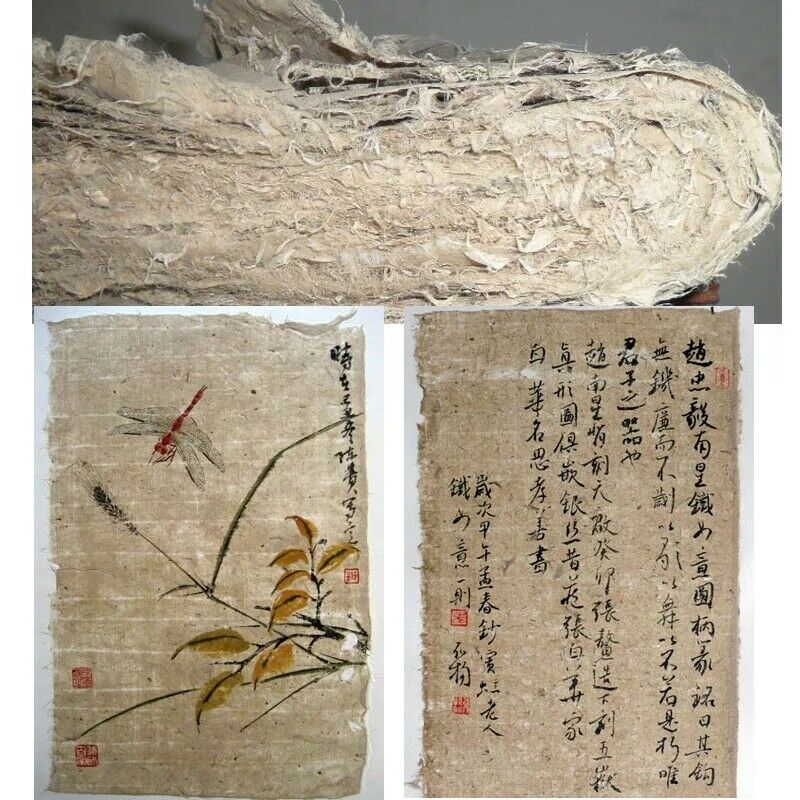 時在己丑冬陳
趙忠毅南星鐵如意圓柄篆銘曰其鉤
無鐖廉而不劌以歌以舞以不若是折唯
君子之器也
趙南星刻天啟癸卯張鰲造下刻五嶽
真形圖俱嵌銀絲昔張伯華家
白華名思孝善書
歲次甲午孟春鈔濱虹老人
鐵如意一則